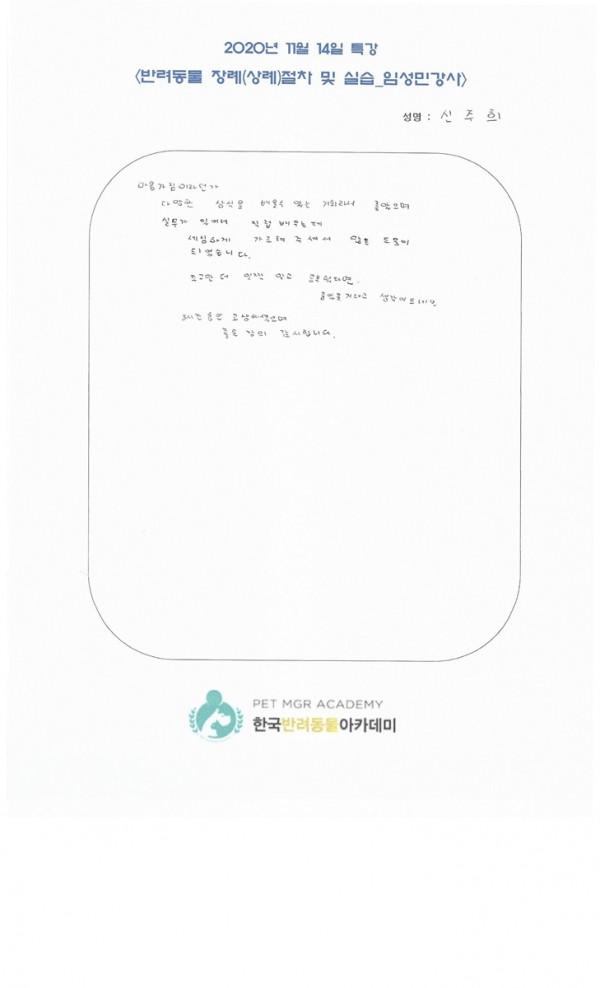 2020년 11월 14일 특강
<반려동물 장례(상례)절차 및 실습_임성민강사>
성명 : 신 주 희
마음가짐이라던가
다양한 상식을 배울수 있는 기회라서 좋았으며
실무가 직접 배우는데
세심하게 가르쳐 주셔서 많은 도움이
되었습니다.
조금만 더 인원
좋았을거라고 생각이 드네요
3시간동안 고생하셨으며
좋은 강의 감사합니다.
PET MGR ACADEMY
한국반려동물아카데미